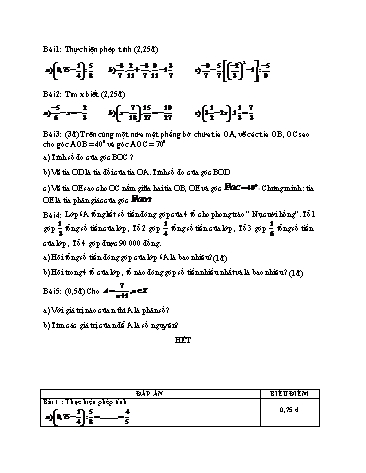 Bài 1: Thực hiện phép tính (2,25đ)
a) (0,75 − 1/4) : 5/8 b) −8/7 · 2/11 + −8/7 · 9/11 − 1 3/7
Bài 2: Tìm x biết (2,25đ)
a) −5/6 − x = 2/3 b) (x − 7/18) · 15/27 = 10/27 c) (3 1/2 − 2x) · 1 1/3 = 7/3
Bài 3: (3đ) Trên cùng một nửa mặt phẳng bờ chứa tia OA, vẽ các tia OB, OC sao
cho góc AOB = 40° và góc AOC = 70°
a) Tính số đo của góc BOC ?
b) Vẽ tia OD là tia đối của tia OA. Tính số đo của góc BOD
c) Vẽ tia OE sao cho OC nằm giữa hai tia OB, OE và góc Chứng minh: tia
OE là tia phân giác của góc
Bài 4: Lớp 6A tổng kết số tiền đóng góp của 4 tổ cho phong trào " Nụ cười hồng". Tổ 1
góp 1/3 tổng số tiền của lớp, Tổ 2 góp 1/4 tổng số tiền của lớp, Tổ 3 góp tổng số tiền
của lớp, Tổ 4 góp được 90 000 đồng.
a) Hỏi tổng số tiền đóng góp của lớp 6A là bao nhiêu? (1đ)
b) Hỏi trong 4 tổ của lớp, tổ nào đóng góp số tiền nhiều nhất và là bao nhiêu? (1đ)
Bài 5: (0,5đ) Cho A = 7/n+1, n ∈ Z
a) Với giá trị nào của n thì A là phân số?
b) Tìm các giá trị của n để A là số nguyên?
HẾT
ĐÁP ÁN BIỂU ĐIỂM
Bài 1 : Thực hiện phép tính
a) (0,75 − 1/4) : 5/8 = ........ = 4/5 0,75 đ